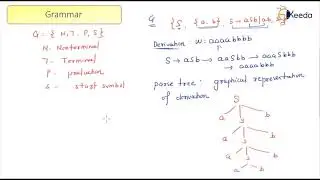 Grammar
G = { N, T, P, S }
N - Nonterminal
T - Terminal
P - production
S - start symbol
G {S, {a, b}, S → aSb|ab, S}
Keeda
Derivation w: aaaabbbb
S → aSb → aaSbb → aaaSbbb
→ aaaabbbb
parse tree: graphical representation
of derivation
S
a S b
a S b
a S b
a b